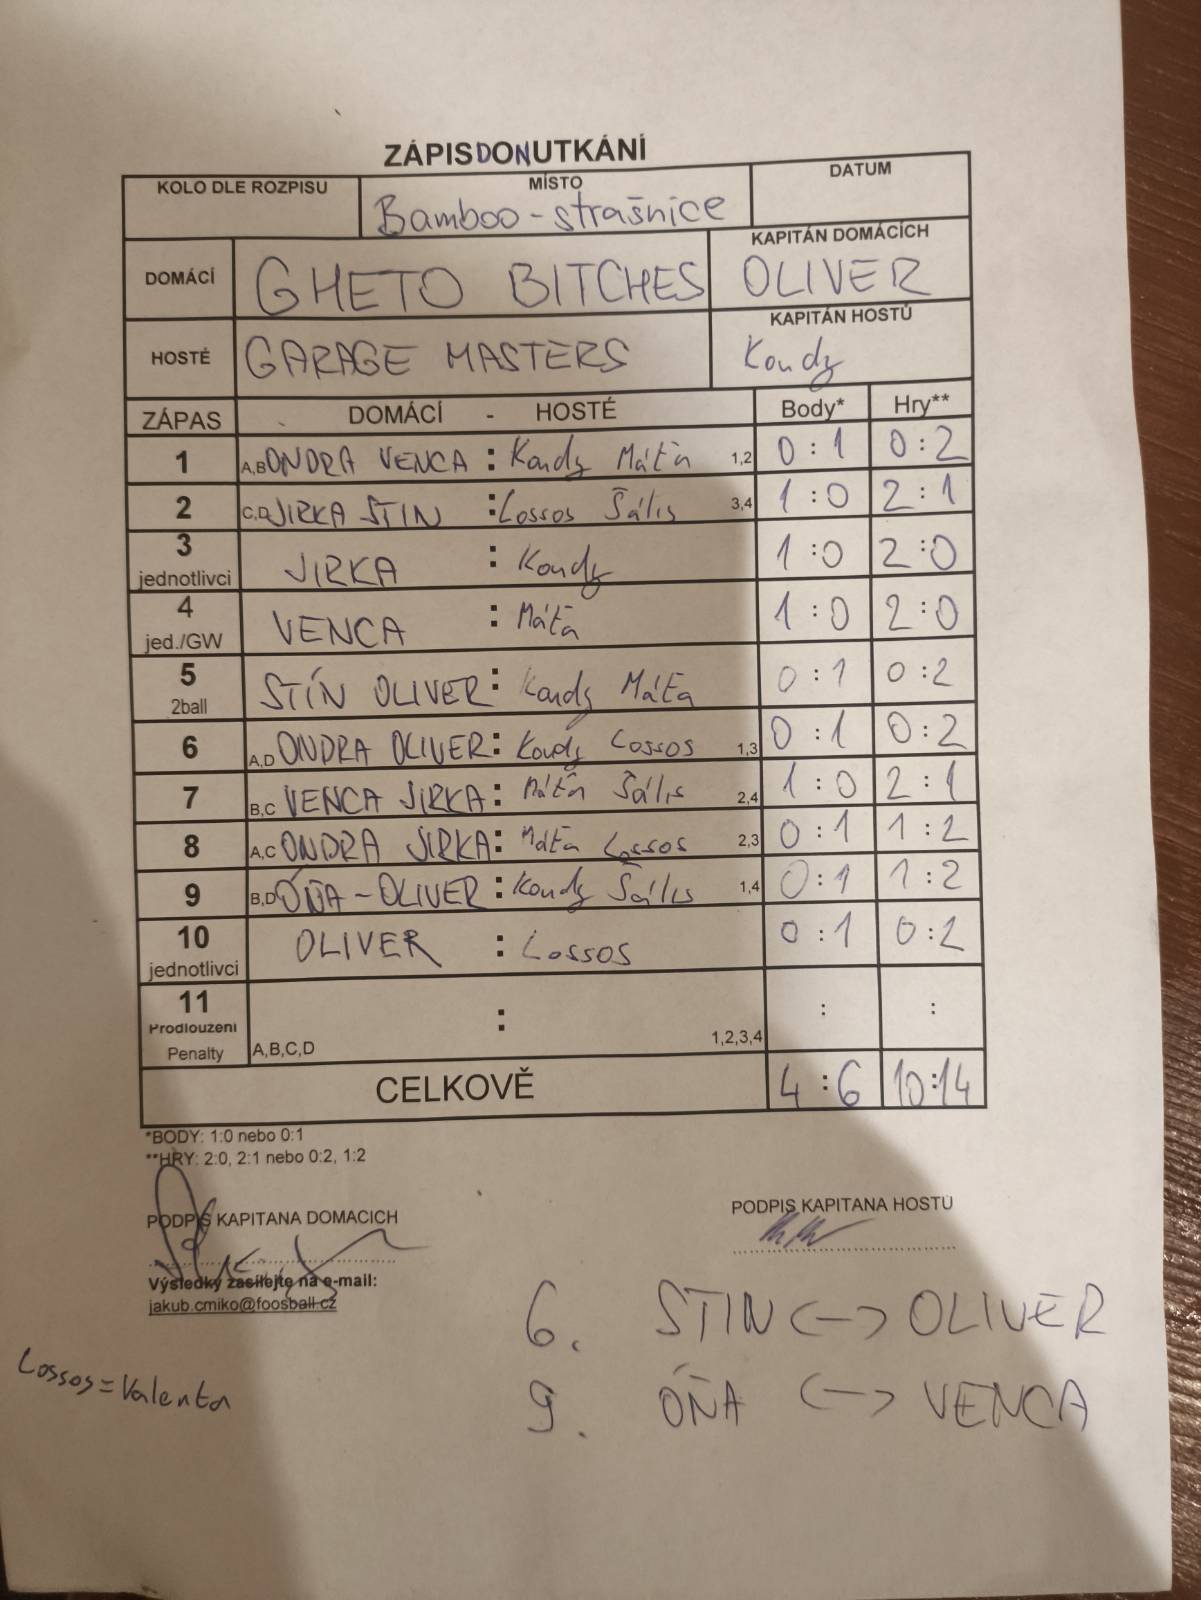 ZÁPISDONUTKÁNÍ
KOLO DLE ROZPISU MÍSTO DATUM
Bamboo - strašnice
DOMÁCÍ GHETO BITCHES KAPITÁN DOMÁCÍCH OLIVER
HOSTÉ GARAGE MASTERS KAPITÁN HOSTŮ Kondy
ZÁPAS DOMÁCÍ - HOSTÉ Body* Hry**
1 A,B ONDRA VENCA : Kondy Máťa 1,2 0:1 0:2
2 C,D JIRKA STIN : Lossos Šális 3,4 1:0 2:1
3 jednotlivci JIRKA : Kondy 1:0 2:0
4 jed./GW VENCA : Máťa 1:0 2:0
5 2ball STÍN OLIVER : Kondy Máťa 0:1 0:2
6 A,D ONDRA OLIVER : Kondy Lossos 1,3 0:1 0:2
7 B,C VENCA JIRKA : Máťa Šális 2,4 1:0 2:1
8 A,C ONDRA JIRKA : Máťa Lossos 2,3 0:1 1:2
9 B,D ÓŇA - OLIVER : Kondy Šális 1,4 0:1 1:2
10 jednotlivci OLIVER : Lossos 0:1 0:2
11 Prodlouzeni Penalty A,B,C,D : 1,2,3,4 : :
CELKOVĚ 4:6 10:14
*BODY: 1:0 nebo 0:1
**HRY: 2:0, 2:1 nebo 0:2, 1:2
PODPIS KAPITANA DOMACICH PODPIS KAPITANA HOSTU
Výsledky zasílejte na e-mail:
jakub.cmiko@foosball.cz
6. STIN <-> OLIVER
Lossos = Valenta
9. ÓŇA <-> VENCA